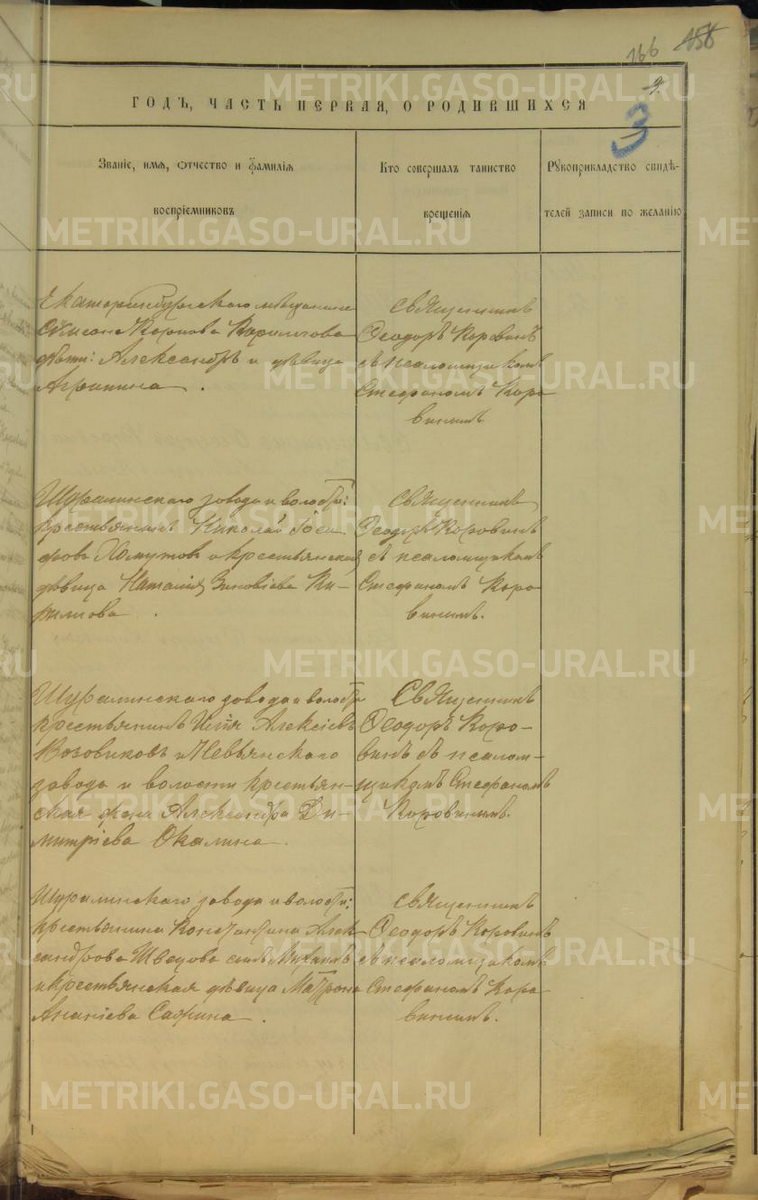 166 158
METRIKI.GASO-URAL.RU
ГОДЪ, ЧАСТЬ ПЕРВАЯ, О РОДИВШИХСЯ
3
Званіе, имя, отчество и фамилія
воспріемниковъ
Кто совершалъ таинство
крещенія
Рукоприкладство свидѣ-
телей записи по желанію
Екатеринбургскаго мѣщанина
Карпова
дѣти: Александръ и дѣвица
Агрипина.
Священникъ
Ѳеодоръ Коровинъ
съ псаломщикомъ
Стефаномъ Коро
винымъ
Шуралинскаго завода и волости:
крестьянинъ Николай
Хомутовъ и крестьянская
дѣвица Наталия Зиновіева Ки-
рилова.
Священникъ
Ѳеодоръ Коровинъ
съ псаломщикомъ
Стефаномъ Коро-
винымъ.
Шуралинскаго завода и волости
крестьянинъ Илія Алексіевъ
Возовиковъ и Невьянскаго
завода и волости крестьян-
ская жена Александра Ди-
митріева Окалина.
Священникъ
Ѳеодоръ Коро-
винъ съ псалом-
щикомъ Стефаномъ
Коровинымъ.
Шуралинскаго завода и волости:
крестьянина Константина Алек-
сандрова Швецова сынъ Михаилъ
и крестьянская дѣвица Матрона
Ананіева Сафина.
Священникъ
Ѳеодоръ Коровинъ
съ псаломщикомъ
Стефаномъ Коро
винымъ.